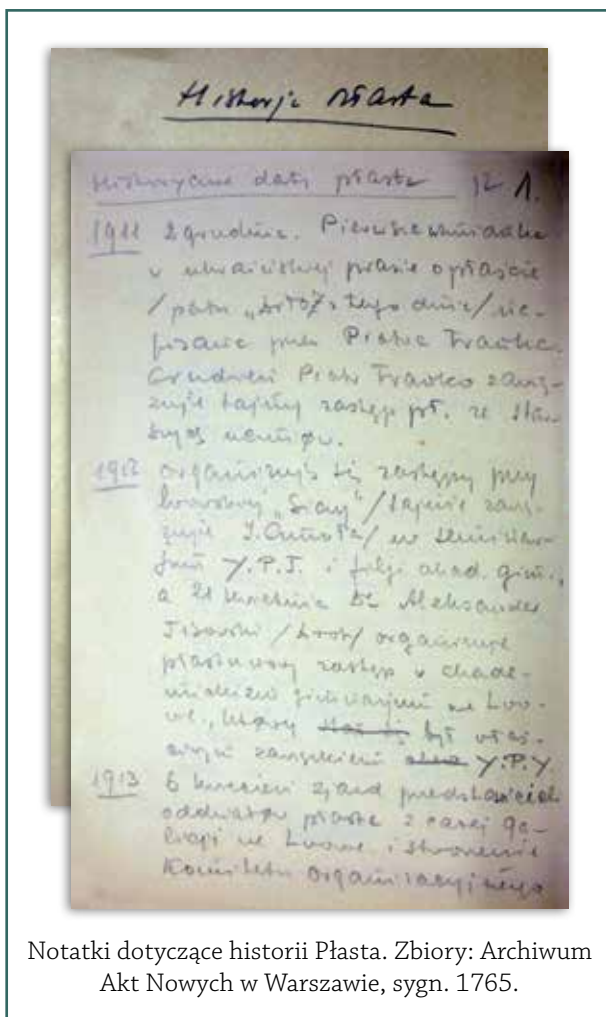 Historja Płasta
Historyczne daty płasta 12 1.
1911 2 grudnia. Pierwsza wzmianka
w ukraińskiej prasie o płaście
tego dnia/ na-
pisana przez Piotra Franka.
Grudzień Piotr Franko zawią-
zuje tajny zastęp pł. ze star
szych uczniów.
1912 organizują się zastępy przy
lwowskiej /tajnie zawią-
zuje w seminar-
jum i filji akad. gimn.,
a 21 kwietnia Dr. Aleksander
Tisowski organizuje
płastunowy zastęp w akade-
mickiem gimnazjum we Lwo-
wie, który był właś-
ciwym zawiązkiem
1913 6 kwiecień zjazd przedstawicieli
oddziałów płasta z całej Ga-
licji we Lwowie i stworzenie
Komitetu organizacyjnego
Notatki dotyczące historii Płasta. Zbiory: Archiwum
Akt Nowych w Warszawie, sygn. 1765.